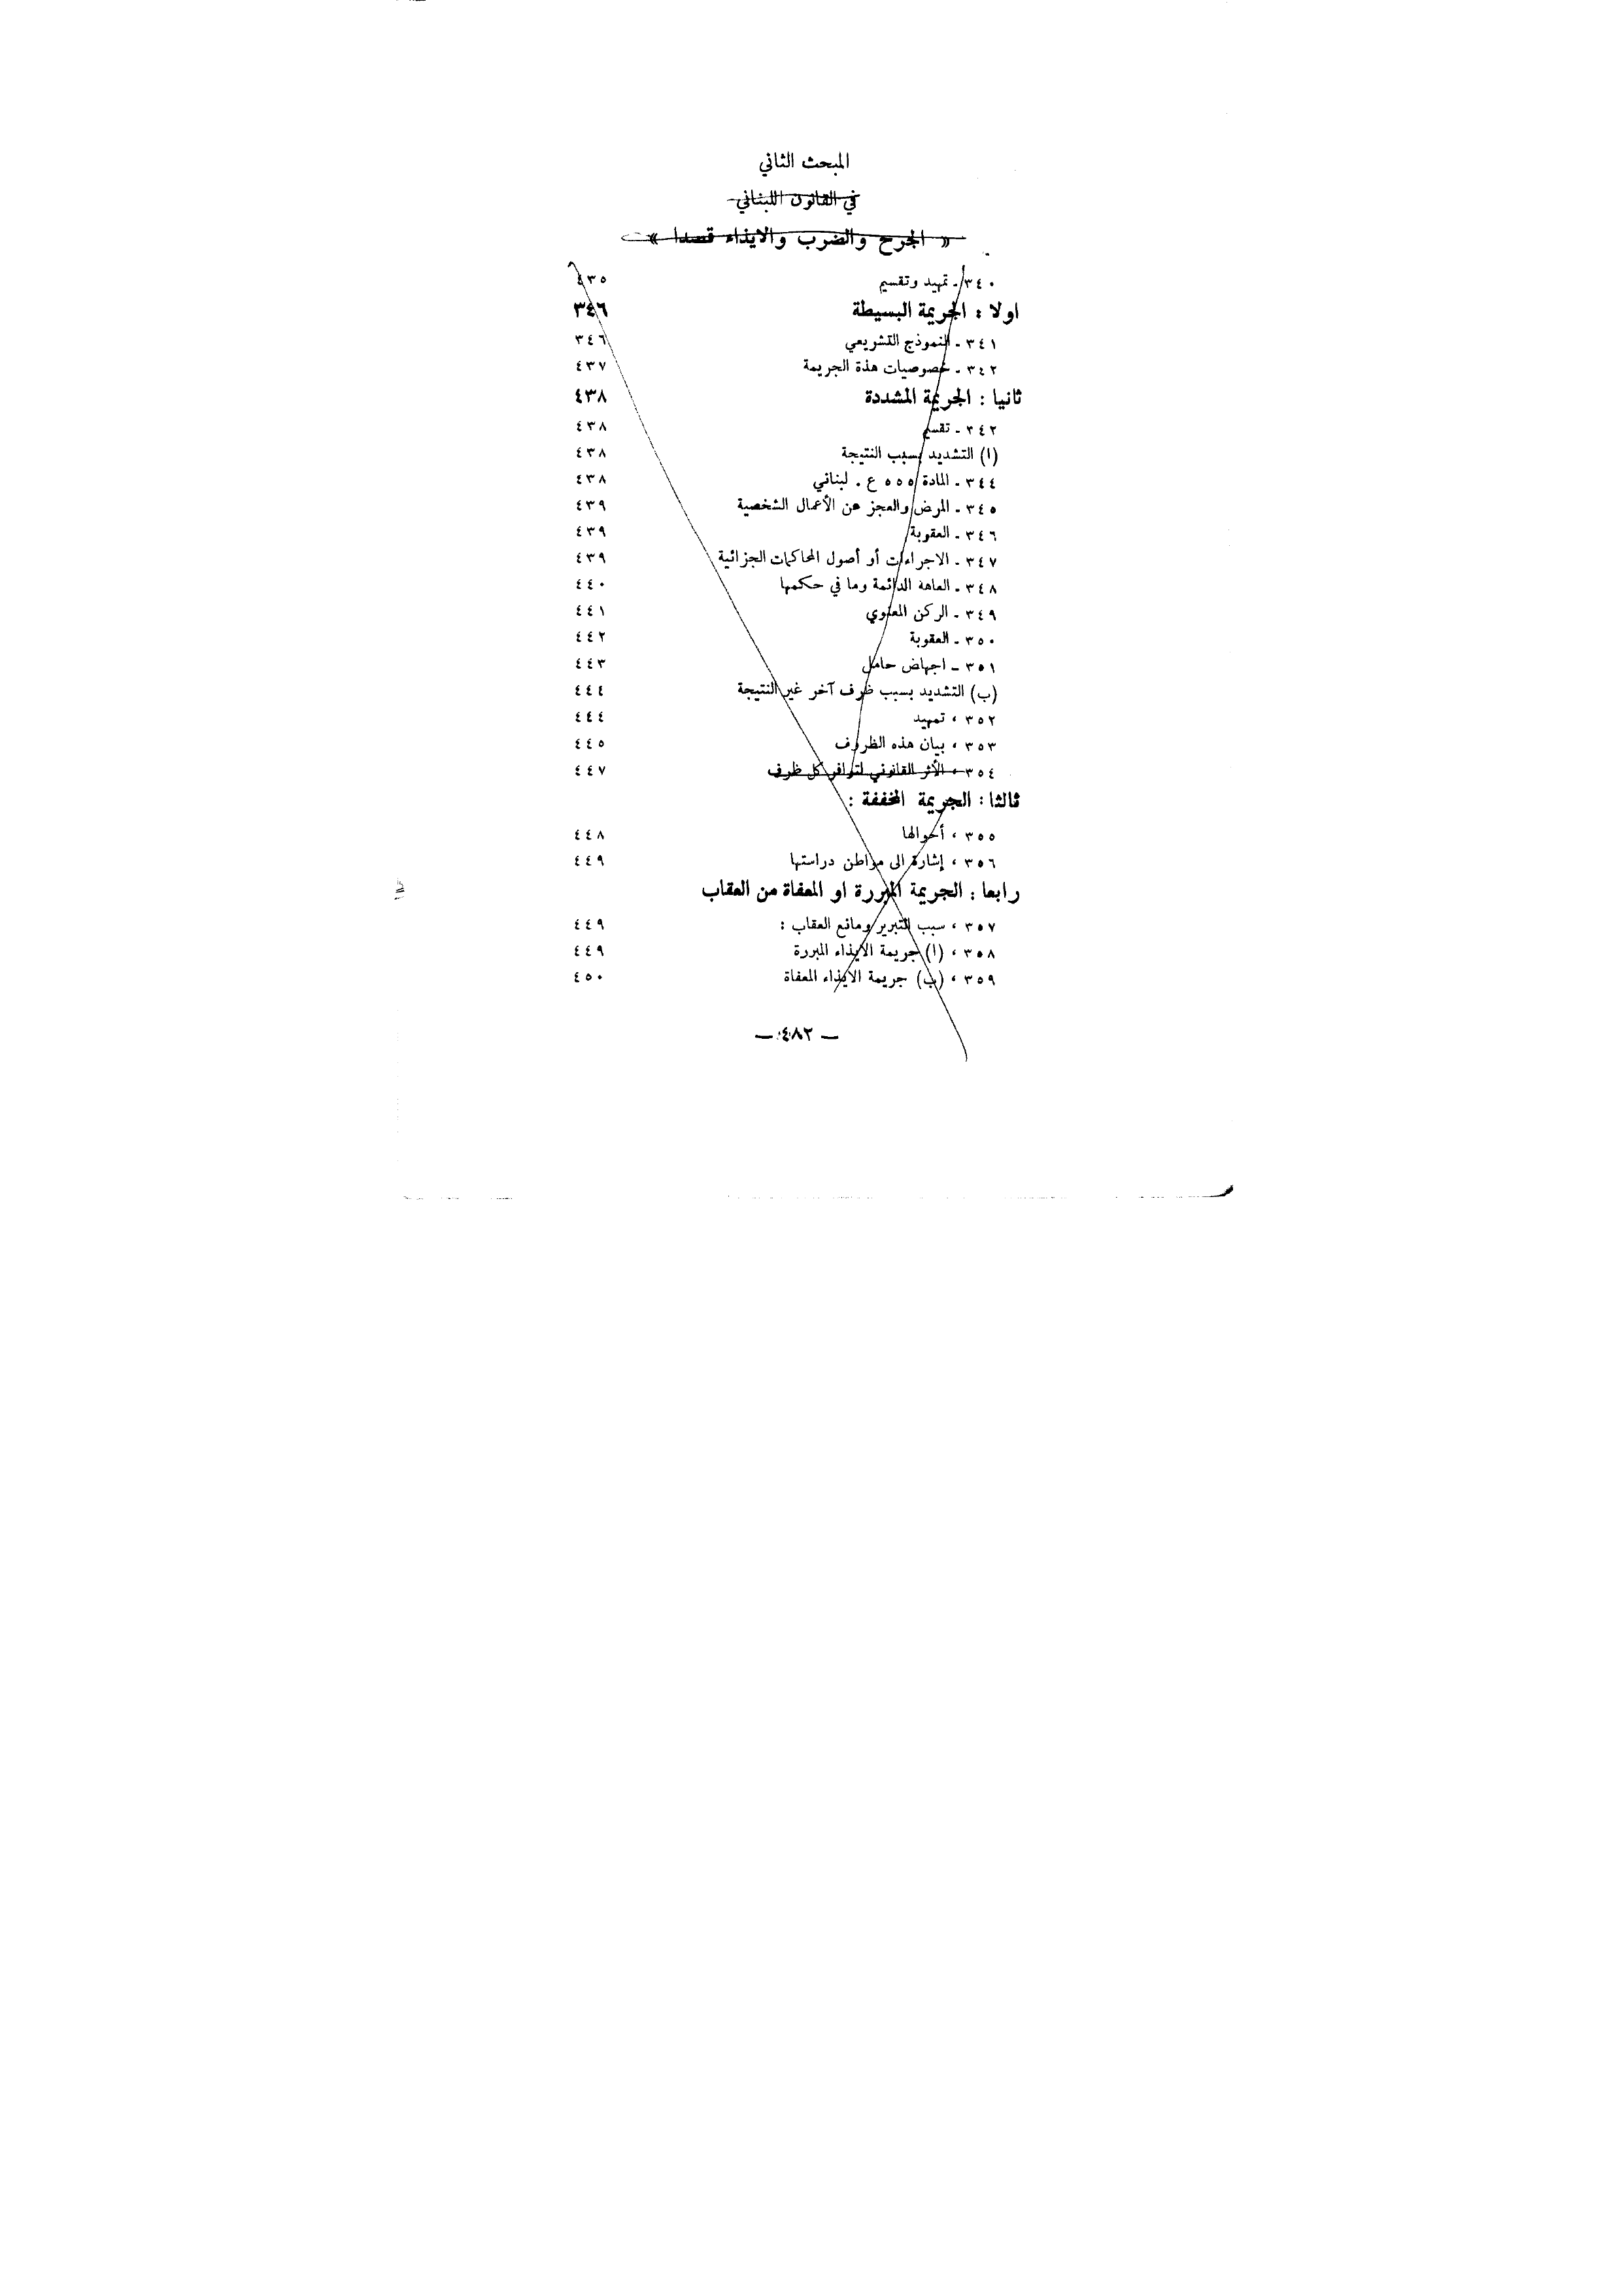 المبحث الثاني
في القانون اللبناني
« الجرح والضرب والايذاء قصدا »
٣٤٠ - تمهيد وتقسيم ٤٣٥
اولا : الجريمة البسيطة ٣٤٦
٣٤١ - النموذج التشريعي ٣٤٦
٣٤٢ - خصوصيات هذة الجريمة ٤٣٧
ثانيا : الجريمة المشددة ٤٣٨
٣٤٢ - تقسيم ٤٣٨
(ا) التشديد بسبب النتيجة ٤٣٨
٣٤٤ - المادة ٥٥٥ ع . لبناني ٤٣٨
٣٤٥ - المرض والعجز عن الأعمال الشخصية ٤٣٩
٣٤٦ - العقوبة ٤٣٩
٣٤٧ - الاجراءات أو أصول المحاكمات الجزائية ٤٣٩
٣٤٨ - العاهة الدائمة وما في حكمها ٤٤٠
٣٤٩ - الركن المعنوي ٤٤١
٣٥٠ - العقوبة ٤٤٢
٣٥١ - اجهاض حامل ٤٤٣
(ب) التشديد بسبب ظرف آخر غير النتيجة ٤٤٤
٣٥٢ ، تمهيد ٤٤٤
٣٥٣ ، بيان هذه الظروف ٤٤٥
٣٥٤ ، الأثر القانوني لتوافر كل ظرف ٤٤٧
ثالثا : الجريمة المخففة :
٣٥٥ ، أحوالها ٤٤٨
٣٥٦ ، إشارة الى مواطن دراستها ٤٤٩
رابعا : الجريمة المبررة او المعفاة من العقاب
٣٥٧ ، سبب التبرير ومانع العقاب : ٤٤٩
٣٥٨ ، (ا) جريمة الايذاء المبررة ٤٤٩
٣٥٩ ، (ب) جريمة الايذاء المعفاة ٤٥٠
— ٤٨٢ —